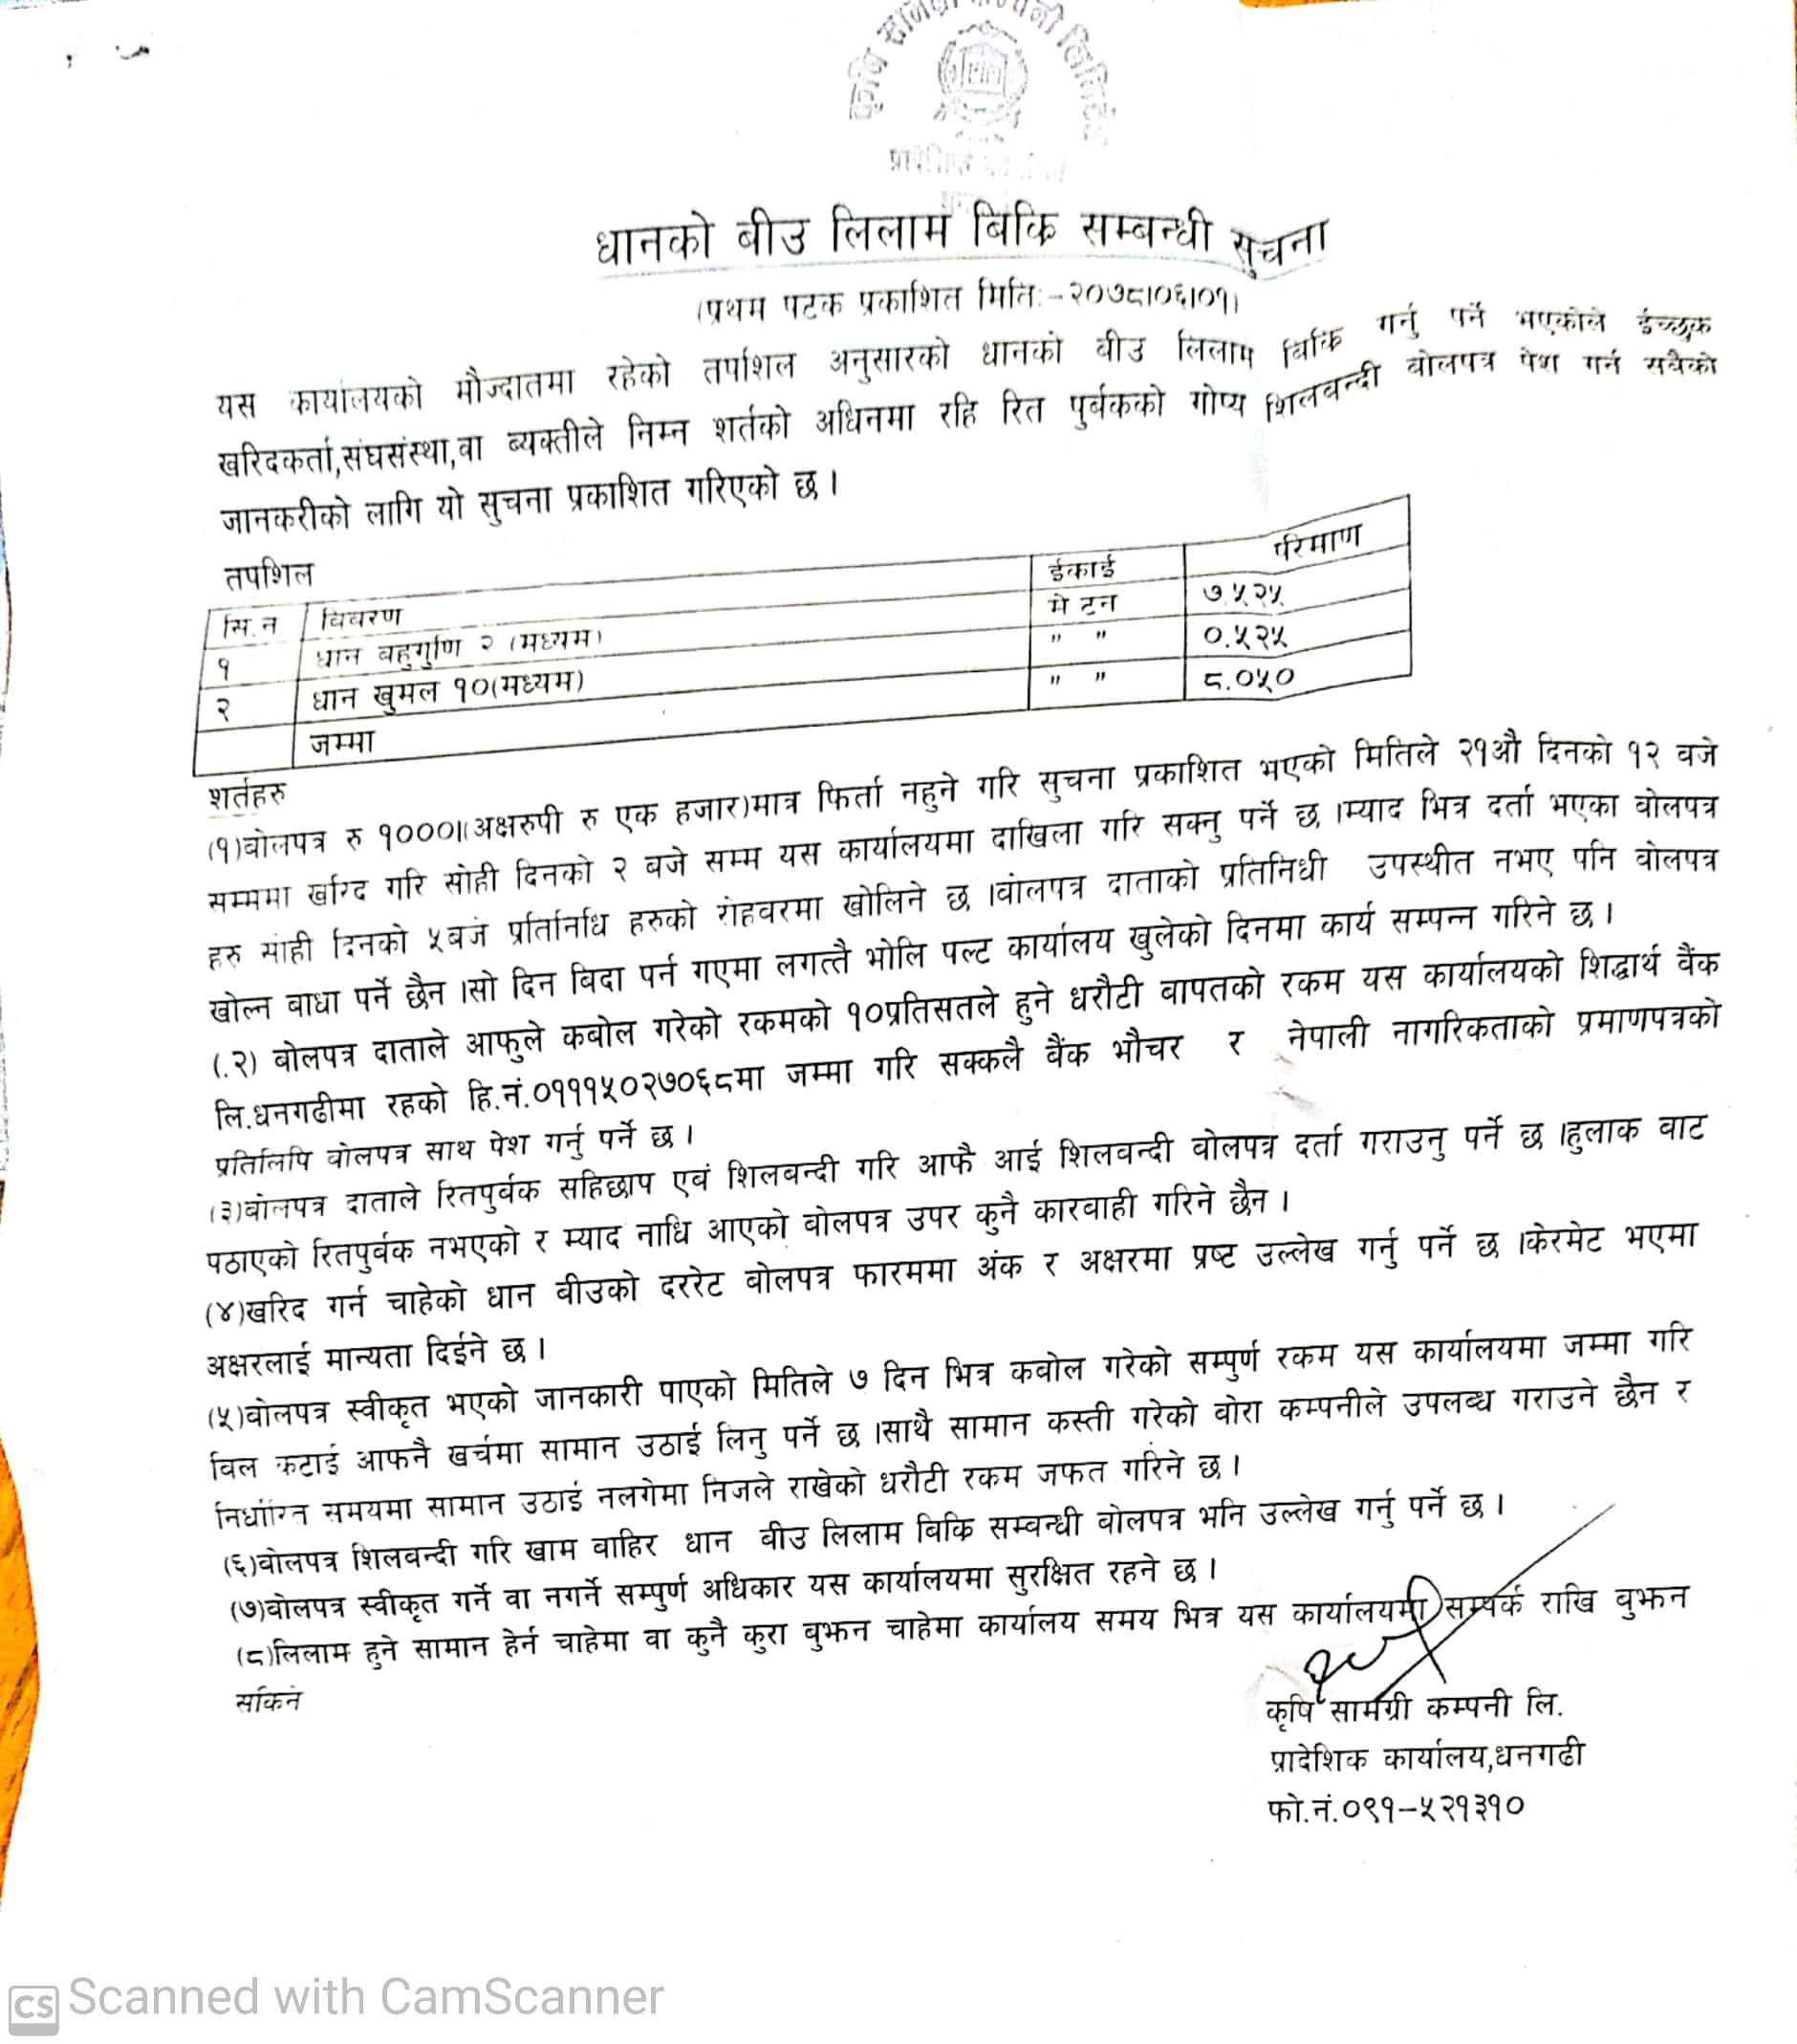 कृषि सामग्री कम्पनी लिमिटेड
धानको बीउ लिलाम बिक्रि सम्बन्धी सुचना
(प्रथम पटक प्रकाशित मितिः-२०७८।०६।०१)
यस कार्यालयको मौज्दातमा रहेको तपशिल अनुसारको धानको बीउ लिलाम बिक्रि गर्नु पर्ने भएकोले ईच्छुक
खरिदकर्ता,संघसंस्था,वा ब्यक्तीले निम्न शर्तको अधिनमा रहि रित पुर्बकको गोप्य शिलवन्दी बोलपत्र पेश गर्न सबैको
जानकरीको लागि यो सुचना प्रकाशित गरिएको छ ।
तपशिल
सि.न विवरण ईकाई परिमाण
१ धान बहुगुणि २ (मध्यम) मे टन ७.५२५
२ धान खुमल १०(मध्यम) " " ०.५२५
जम्मा " " ८.०५०
शर्तहरु
(१)बोलपत्र रु १०००।(अक्षरुपी रु एक हजार)मात्र फिर्ता नहुने गरि सुचना प्रकाशित भएको मितिले २१औ दिनको १२ वजे
सम्ममा खरिद गरि सोही दिनको २ बजे सम्म यस कार्यालयमा दाखिला गरि सक्नु पर्ने छ ।म्याद भित्र दर्ता भएका बोलपत्र
हरु सोही दिनको ५बजे प्रतिनिधि हरुको रोहवरमा खोलिने छ ।वोलपत्र दाताको प्रतिनिधी उपस्थीत नभए पनि वोलपत्र
खोल्न बाधा पर्ने छैन ।सो दिन बिदा पर्न गएमा लगत्तै भोलि पल्ट कार्यालय खुलेको दिनमा कार्य सम्पन्न गरिने छ ।
(.२) बोलपत्र दाताले आफुले कबोल गरेको रकमको १०प्रतिसतले हुने धरौटी वापतको रकम यस कार्यालयको शिद्धार्थ वैंक
लि.धनगढीमा रहको हि.नं.०१११५०२७०६८मा जम्मा गरि सक्कलै बैंक भौचर र नेपाली नागरिकताको प्रमाणपत्रको
प्रतिलिपि वोलपत्र साथ पेश गर्नु पर्ने छ ।
(३)बोलपत्र दाताले रितपुर्वक सहिछाप एवं शिलबन्दी गरि आफै आई शिलवन्दी बोलपत्र दर्ता गराउनु पर्ने छ ।हुलाक वाट
पठाएको रितपुर्वक नभएको र म्याद नाधि आएको बोलपत्र उपर कुनै कारवाही गरिने छैन ।
(४)खरिद गर्न चाहेको धान बीउको दररेट बोलपत्र फारममा अंक र अक्षरमा प्रष्ट उल्लेख गर्नु पर्ने छ ।केरमेट भएमा
अक्षरलाई मान्यता दिईने छ ।
(५)बोलपत्र स्वीकृत भएको जानकारी पाएको मितिले ७ दिन भित्र कबोल गरेको सम्पुर्ण रकम यस कार्यालयमा जम्मा गरि
विल कटाई आफनै खर्चमा सामान उठाई लिनु पर्ने छ ।साथै सामान कस्ती गरेको वोरा कम्पनीले उपलब्ध गराउने छैन र
निर्धारित समयमा सामान उठाई नलगेमा निजले राखेको धरौटी रकम जफत गरिने छ ।
(६)बोलपत्र शिलवन्दी गरि खाम वाहिर धान बीउ लिलाम बिक्रि सम्वन्धी बोलपत्र भनि उल्लेख गर्नु पर्ने छ ।
(७)बोलपत्र स्वीकृत गर्ने वा नगर्ने सम्पुर्ण अधिकार यस कार्यालयमा सुरक्षित रहने छ ।
(८)लिलाम हुने सामान हेर्न चाहेमा वा कुनै कुरा बुझन चाहेमा कार्यालय समय भित्र यस कार्यालयमा सम्पर्क राखि वुझन
सकिने
कृषि सामग्री कम्पनी लि.
प्रादेशिक कार्यालय,धनगढी
फो.नं.०९१-५२१३१०
CS Scanned with CamScanner